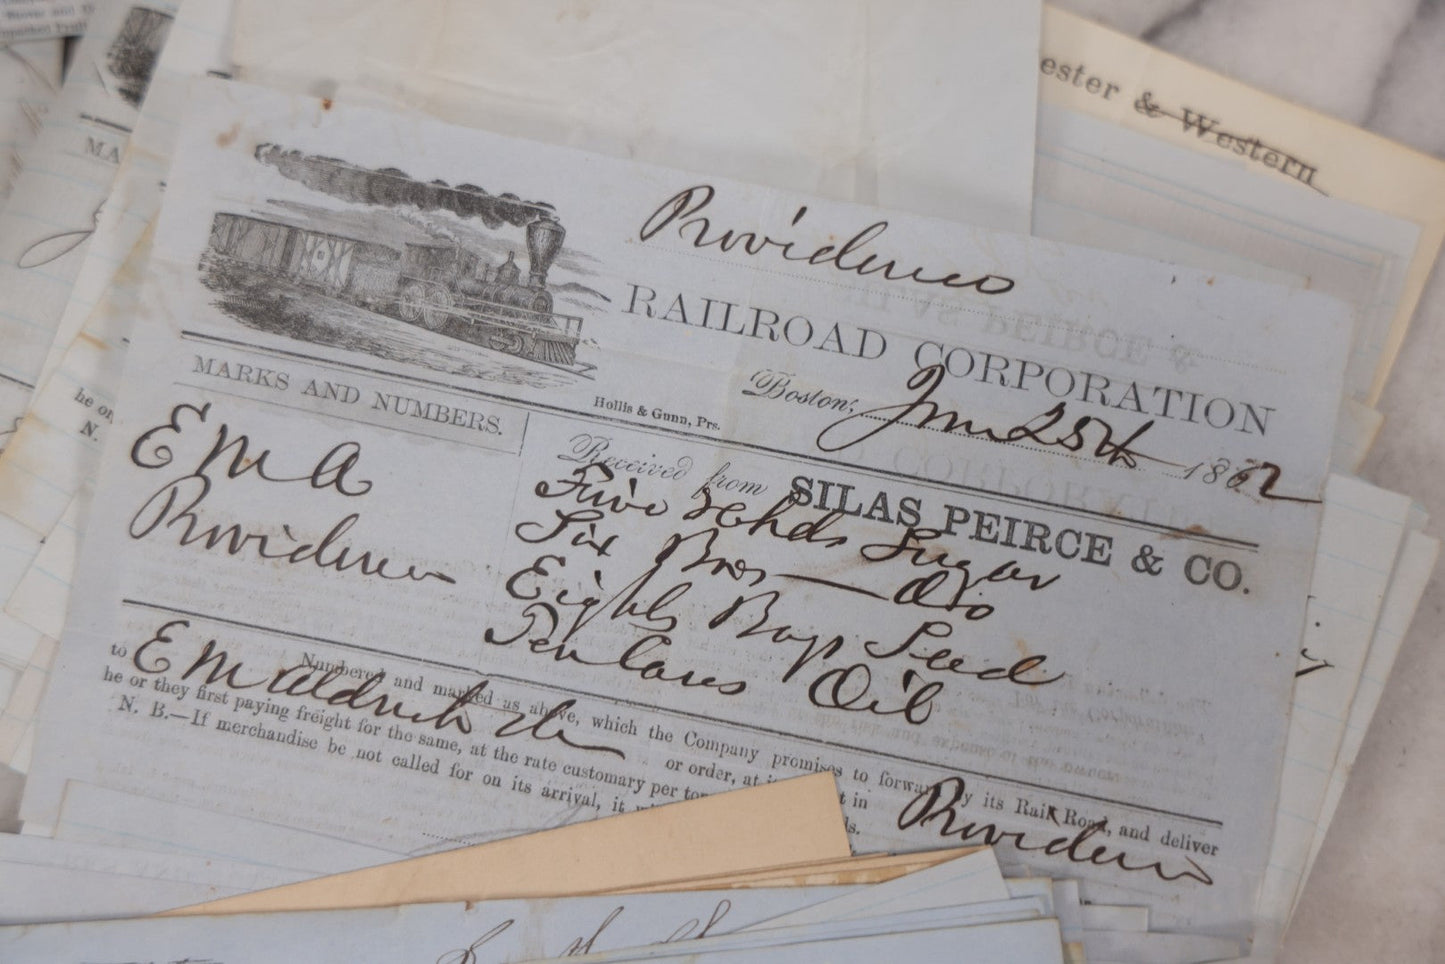 ester & Western
Providence
RAILROAD CORPORATION
Hollis & Gunn, Prs.
Boston, June 25th 1862
MARKS AND NUMBERS.
MA
Received from SILAS PEIRCE & CO.
E M A
Providence
Five Hhds Sugar
Six Brs — Do
Eight Bags Seed
Ten Cans Oil
Numbered and marked as above, which the Company promises to forward by its Rail Road, and deliver
to E M Aldrich &c or order, at in Providence
he or they first paying freight for the same, at the rate customary per ton
N. B.—If merchandise be not called for on its arrival, it ds.
he or
N.